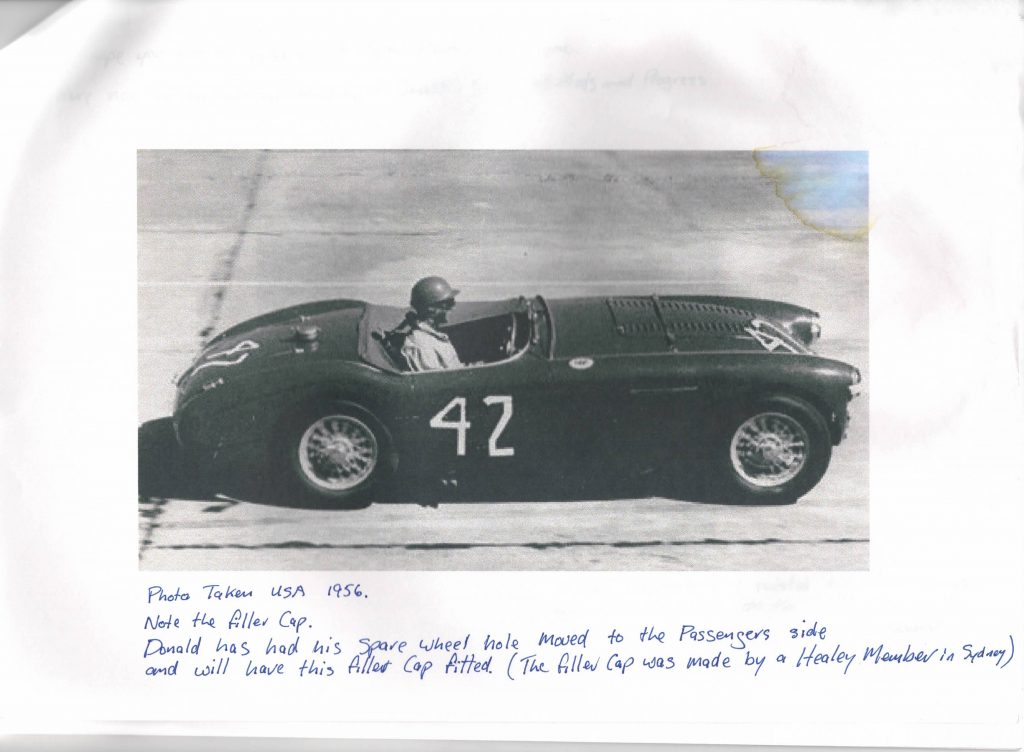 and Progress
42
42
42
Photo Taken USA 1956.
Note the filler Cap.
Donald has had his spare wheel hole moved to the Passengers side
and will have this filler Cap fitted. (The filler Cap was made by a Healey Member in Sydney)